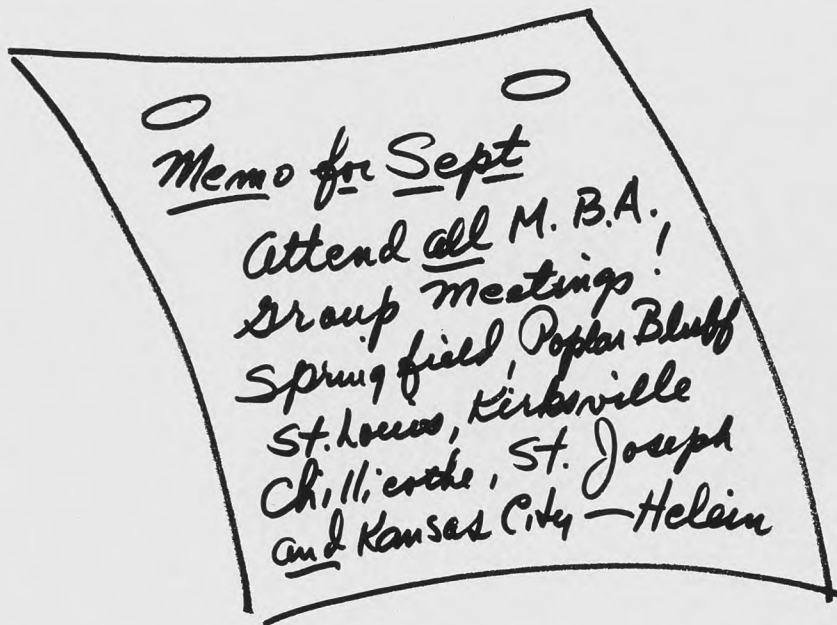 Memo for Sept
Attend all M. B. A.,
Group Meetings!
Springfield, Poplar Bluff
St. Louis, Kirksville
Chillicothe, St. Joseph
and Kansas City — Helein